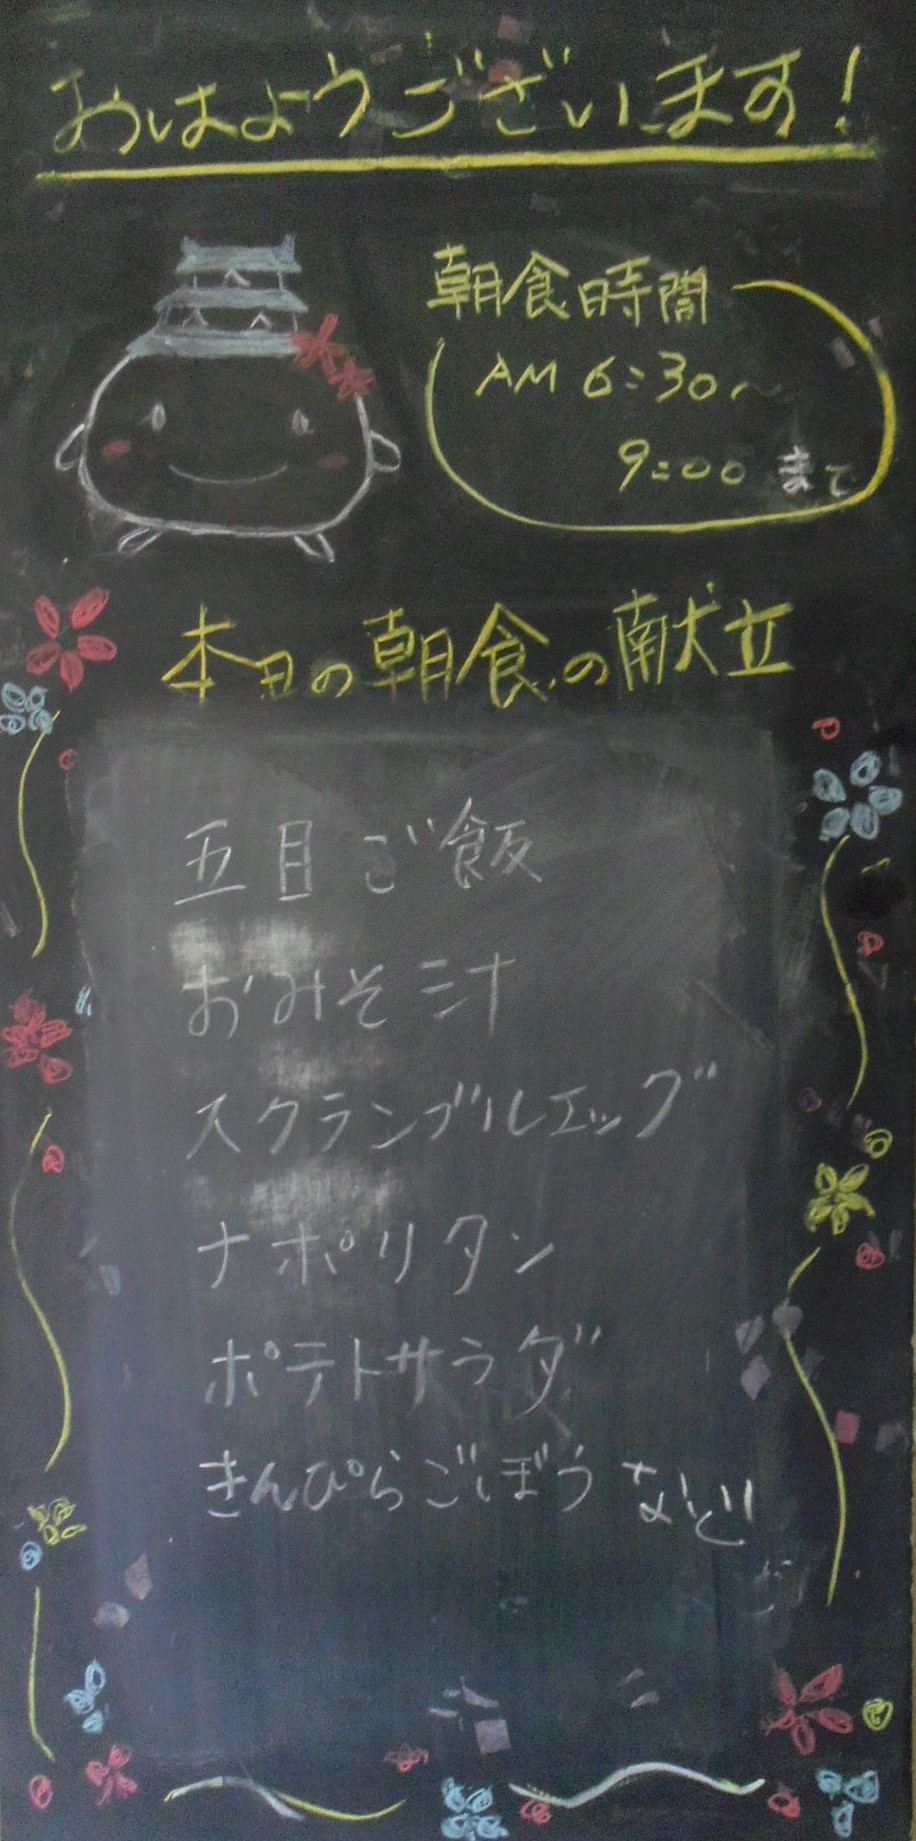 おはようございます！
朝食時間
AM 6:30～
9:00 まで
本日の朝食の献立
五目ご飯
おみそ汁
スクランブルエッグ
ナポリタン
ポテトサラダ
きんぴらごぼう など!!